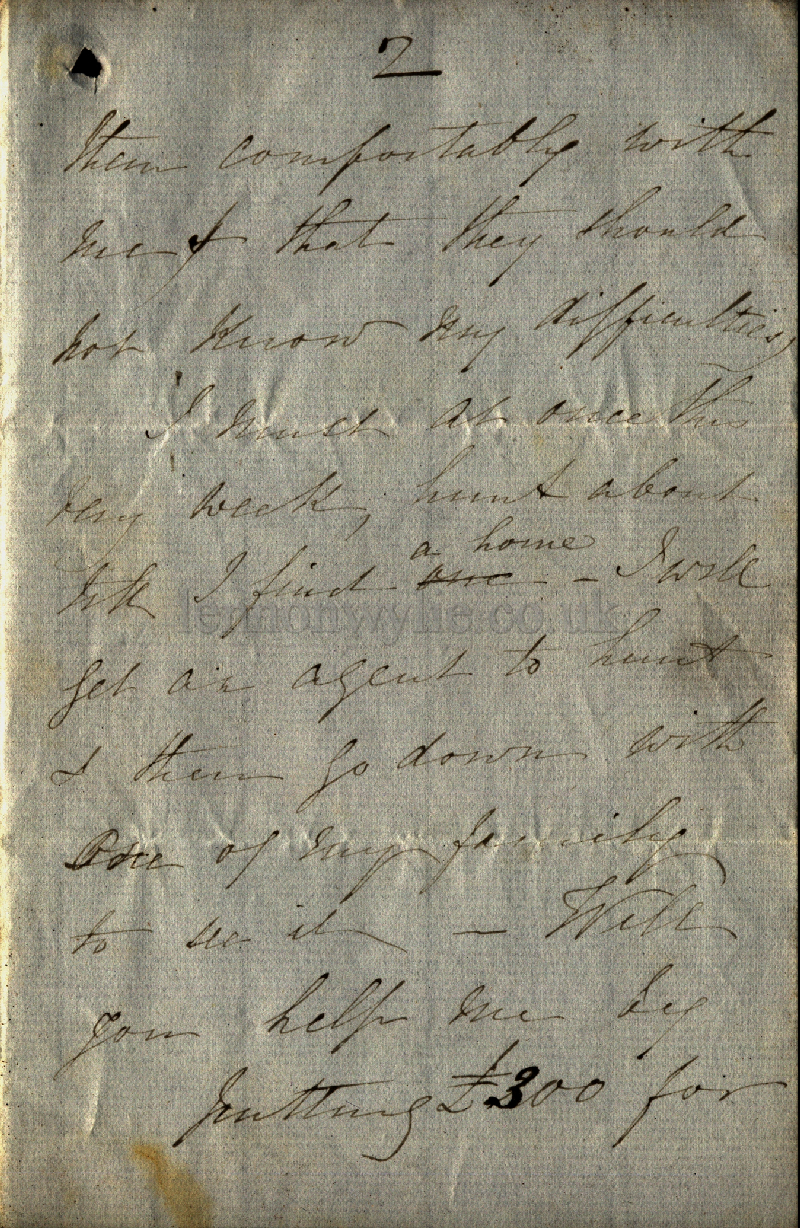 2
them comfortably with
me & that they should
not know my difficulties,
I must at once this
very week, hunt about
till I find a home
one - I will
get an agent to hunt
& then go down with
one of my family
to see it - Will
you help me by
putting £300 for
lennonwylie.co.uk